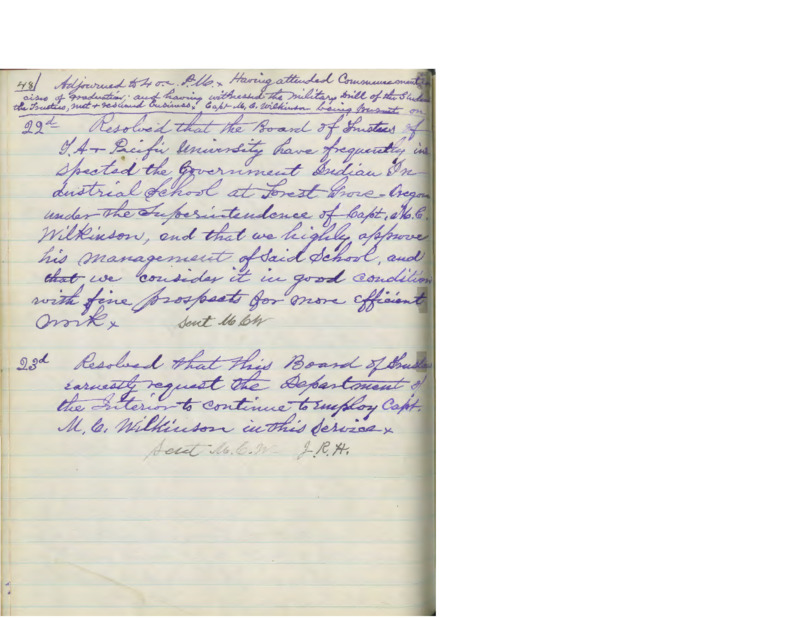 48/ Adjourned to 4 o.c. P.M. x Having attended Commencement
cises of graduation and having witnessed the Military Drill of the
the Trustees, met & resumed business. Capt M. C. Wilkinson being present on
22d Resolved that the Board of Trustees of
T. A & Pacific University have frequently in
spected the Government Indian In-
dustrial School at Forest Grove - Oregon
under the Superintendence of Capt. M. C.
Wilkinson, and that we highly approve
his management of said School, and
that we consider it in good condition
with fine prospects for more efficient
work x Sent M C W
23d Resolved that this Board of Trustees
earnestly request the Department of
the Interior to continue to employ Capt.
M. C. Wilkinson in this service x
Sent M. C. W J. R. H.